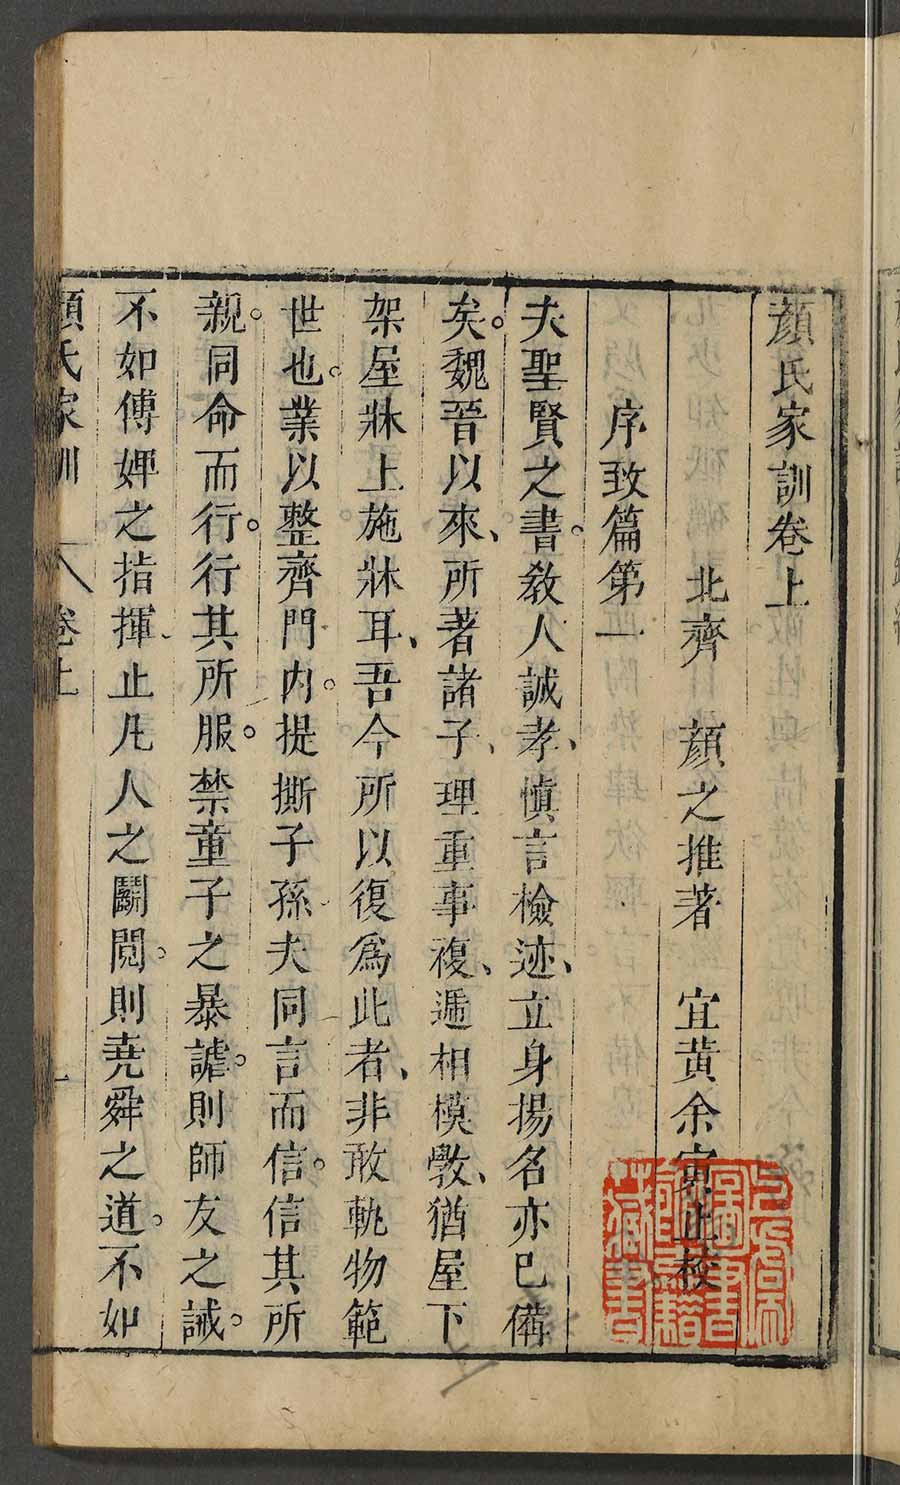 顏氏家訓卷上
北齊 顏之推著 宜黃余寅止校
序致篇第一
夫聖賢之書。教人誠孝、慎言檢迹、立身揚名亦已備
矣。魏晉以來、所著諸子、理重事複、遞相模斆、猶屋下
架屋牀上施牀耳、吾今所以復爲此者、非敢軌物範
世也。業以整齊門內。提撕子孫夫同言而信。信其所
親。同命而行。行其所服。禁童子之暴謔。則師友之誡。
不如傅婢之指揮止凡人之鬬鬩。則堯舜之道。不如
顏氏家訓 卷上 一